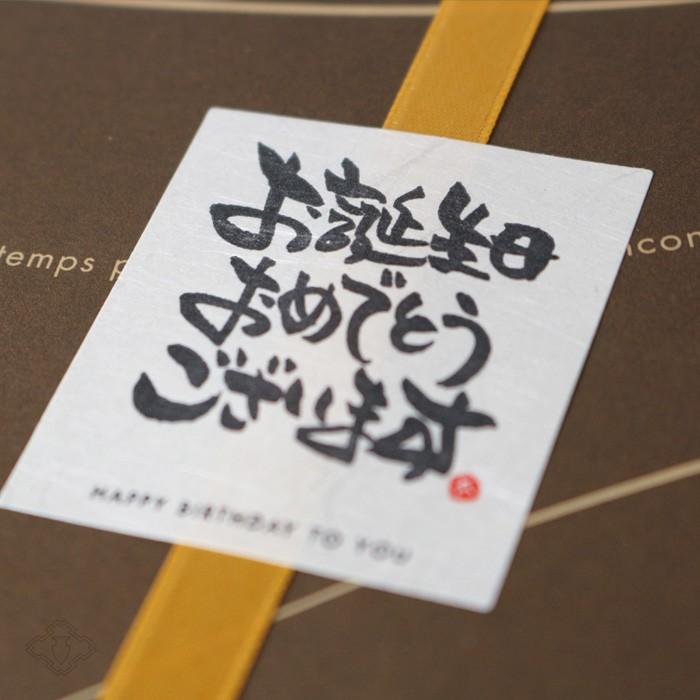 お誕生日
おめでとう
ございます
HAPPY BIRTHDAY TO YOU
temps